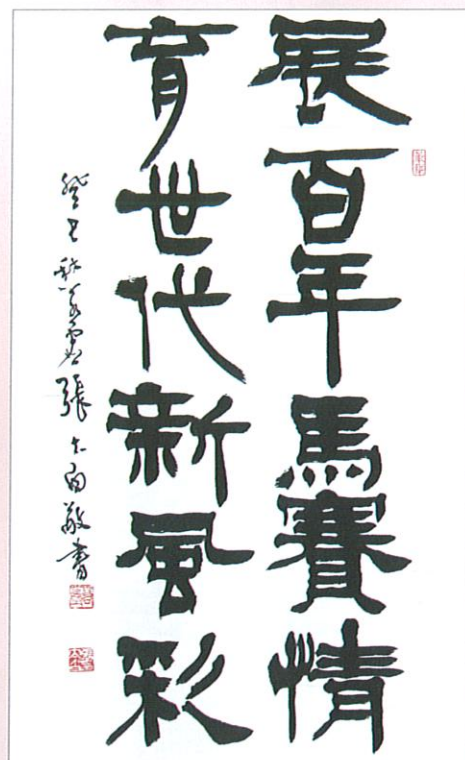 展百年馬賽情
育世代新風彩
張大白敬書